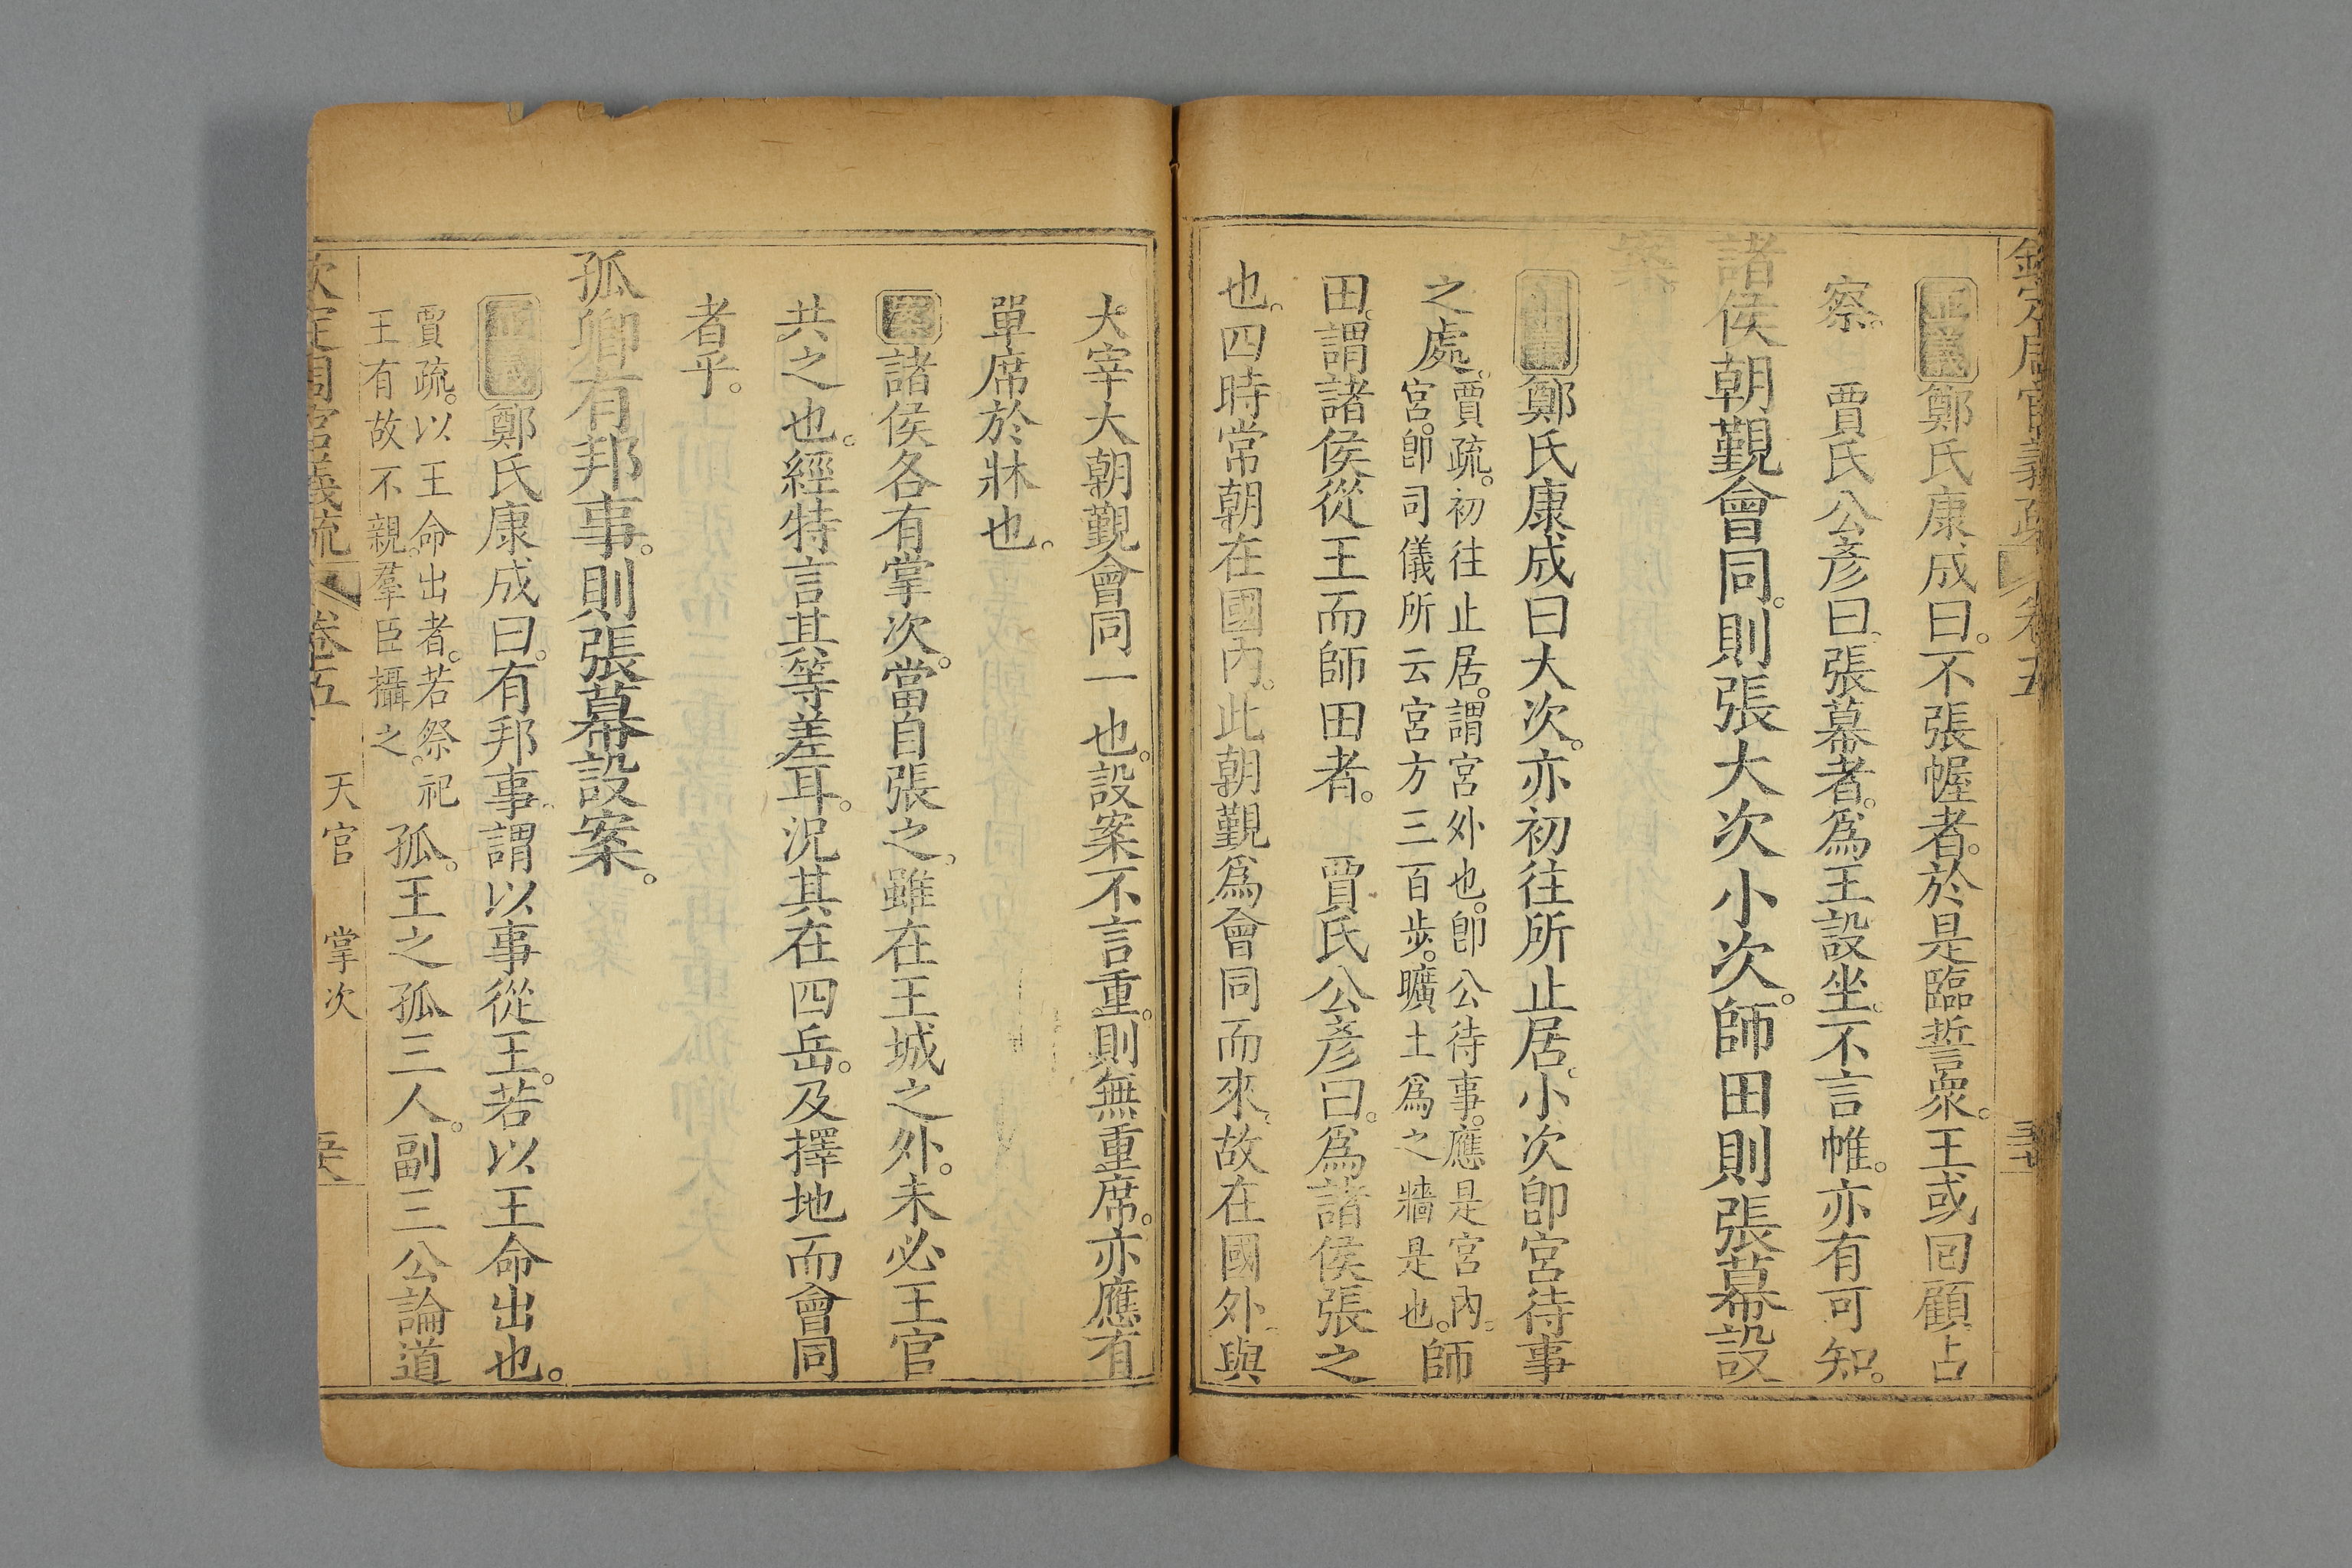 欽定周官義疏 卷五
正義鄭氏康成曰。不張幄者。於是臨誓衆。王或回顧占
察。 賈氏公彥曰。張幕者。爲王設坐。不言帷。亦有可知。
諸侯朝覲會同。則張大次小次。師田則張幕設
案
正義鄭氏康成曰大次。亦初往所止居。小次卽宮待事
之處。賈疏。初往止居。謂宮外也。卽公待事。應是宮內。
宮。卽司儀所云宮方三百步。曠土爲之牆是也。師
田。謂諸侯從王而師田者。 賈氏公彥曰。爲諸侯張之
也。四時常朝在國內。此朝覲爲會同而來。故在國外。與
大宰大朝覲會同一也。設案不言重。則無重席。亦應有
單席於牀也。
案諸侯各有掌次。當自張之。雖在王城之外。未必王官
共之也。經特言其等差耳。況其在四岳。及擇地而會同
者乎。
孤卿有邦事。則張幕設案。
正義鄭氏康成曰。有邦事。謂以事從王。若以王命出也。
賈疏。以王命出者。若祭祀
王有故不親。羣臣攝之。孤。王之孤三人。副三公論道
欽定周官義疏 卷五 天官 掌次